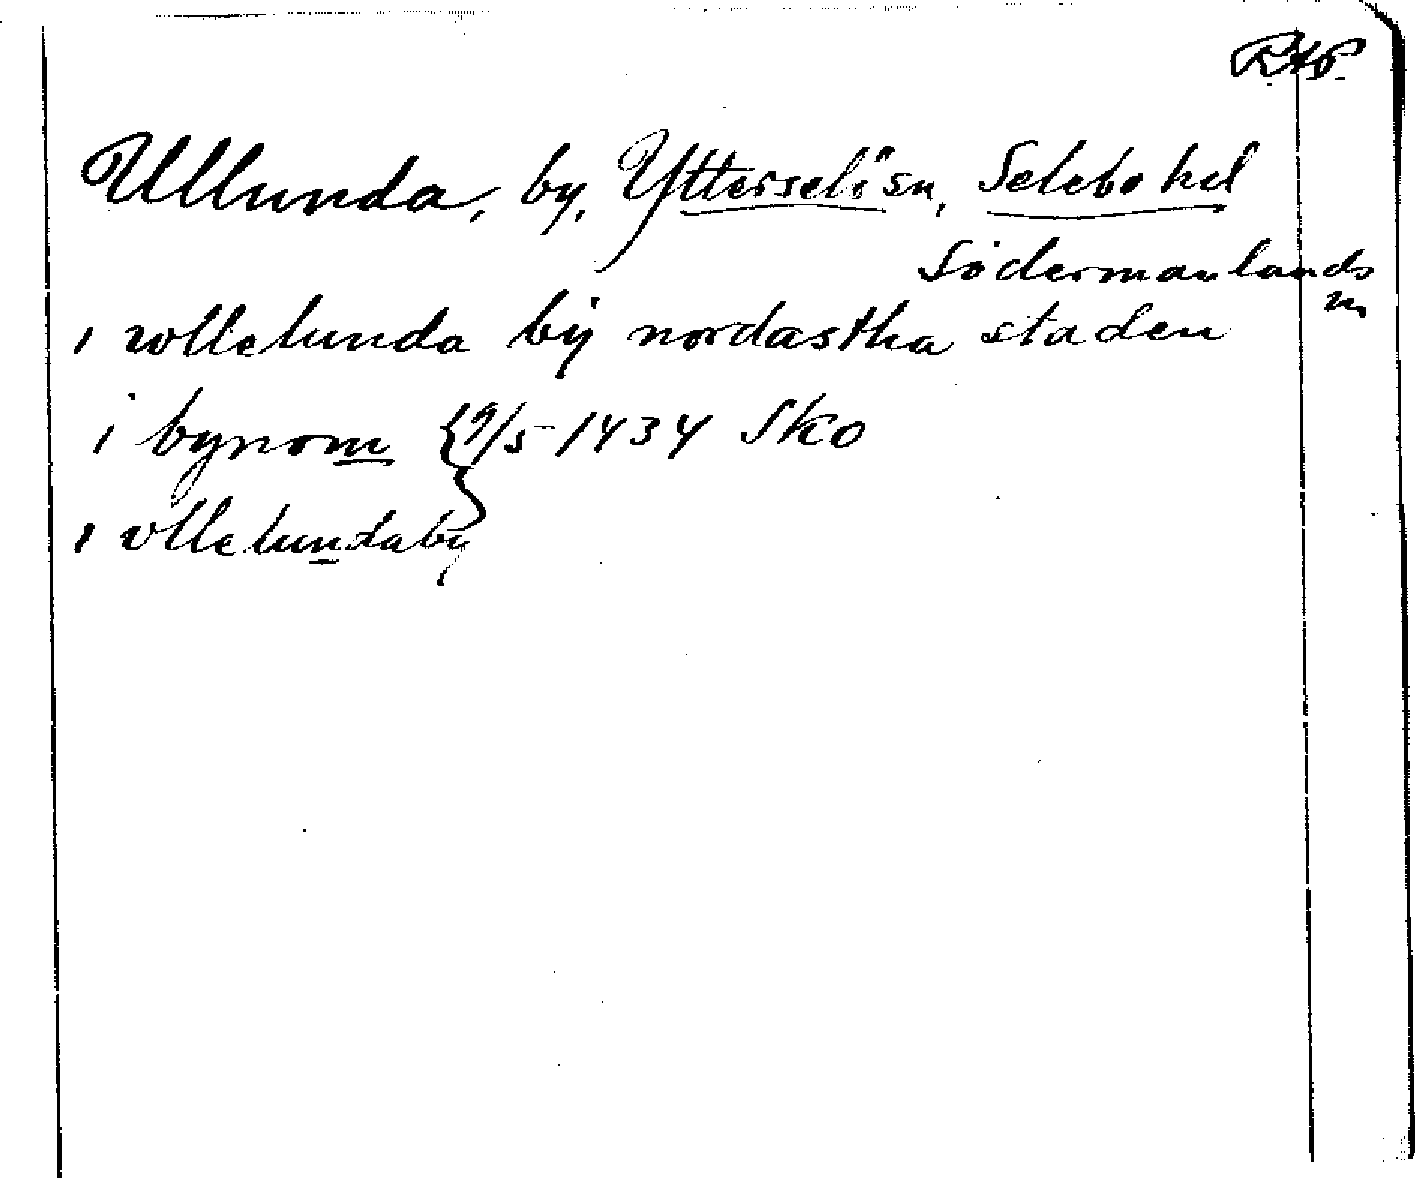 RAP.
Ullunda, by, Ytterselö sn, Selebo hd
Södermanlands
ı wllelunda bÿ nordastha staden
i bynom 9/5 1434 Sko
ı vllelundaby